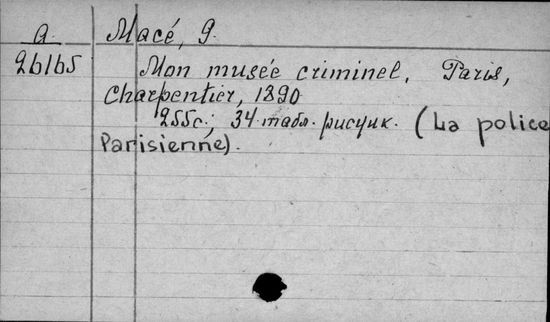 a. Macé, G.
26165 Mon musée criminel. Paris,
Charpentier, 1890
255с.; 34 табл. рисунк. (La police
Parisienne).